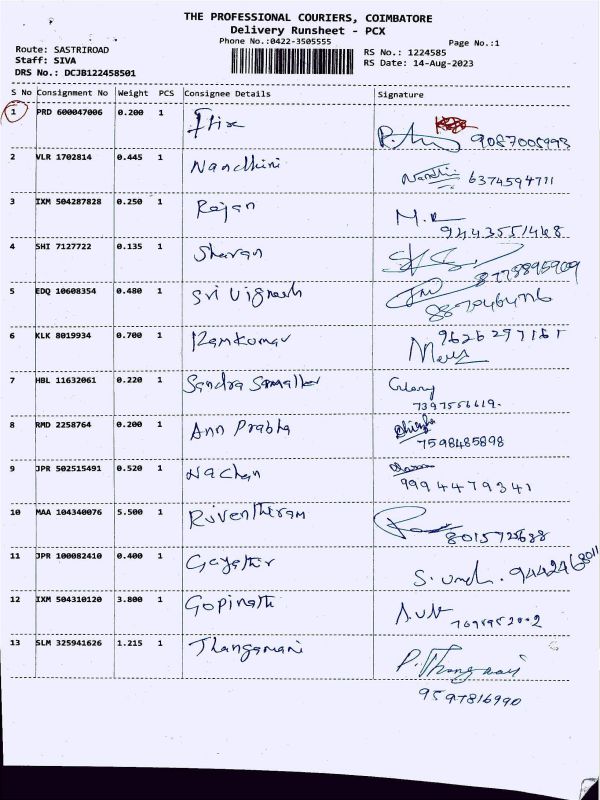 THE PROFESSIONAL COURIERS, COIMBATORE
Delivery Runsheet - PCX
Phone No.:0422-3505555
Page No.:1
Route: SASTRIROAD
Staff: SIVA
DRS No.: DCJB122458501
RS No.: 1224585
RS Date: 14-Aug-2023
S No Consignment No Weight PCS Consignee Details Signature
1 PRD 600047006 0.200 1
9087005993
2 VLR 1702814 0.445 1 Nandhini Nandhi 6374594711
3 IXM 504287828 0.250 1 Rajan M.R
9443551468
4 SHI 7127722 0.135 1 Sharan
5 EDQ 10608354 0.480 1 Sri Vignesh
6 KLK 8019934 0.700 1 Ramkumar
7 HBL 11632061 0.220 1 Sandra
7397556619.
8 RMD 2258764 0.200 1 Ann Prabha
7598485898
9 JPR 502515491 0.520 1 Nachan
9994479341
10 MAA 104340076 5.500 1
8015725688
11 JPR 100082410 0.400 1 Gayathir
9442468011
12 IXM 504310120 3.800 1 Gopinath
13 SLM 325941626 1.215 1 Thangamani P. Thangamani
9597816990